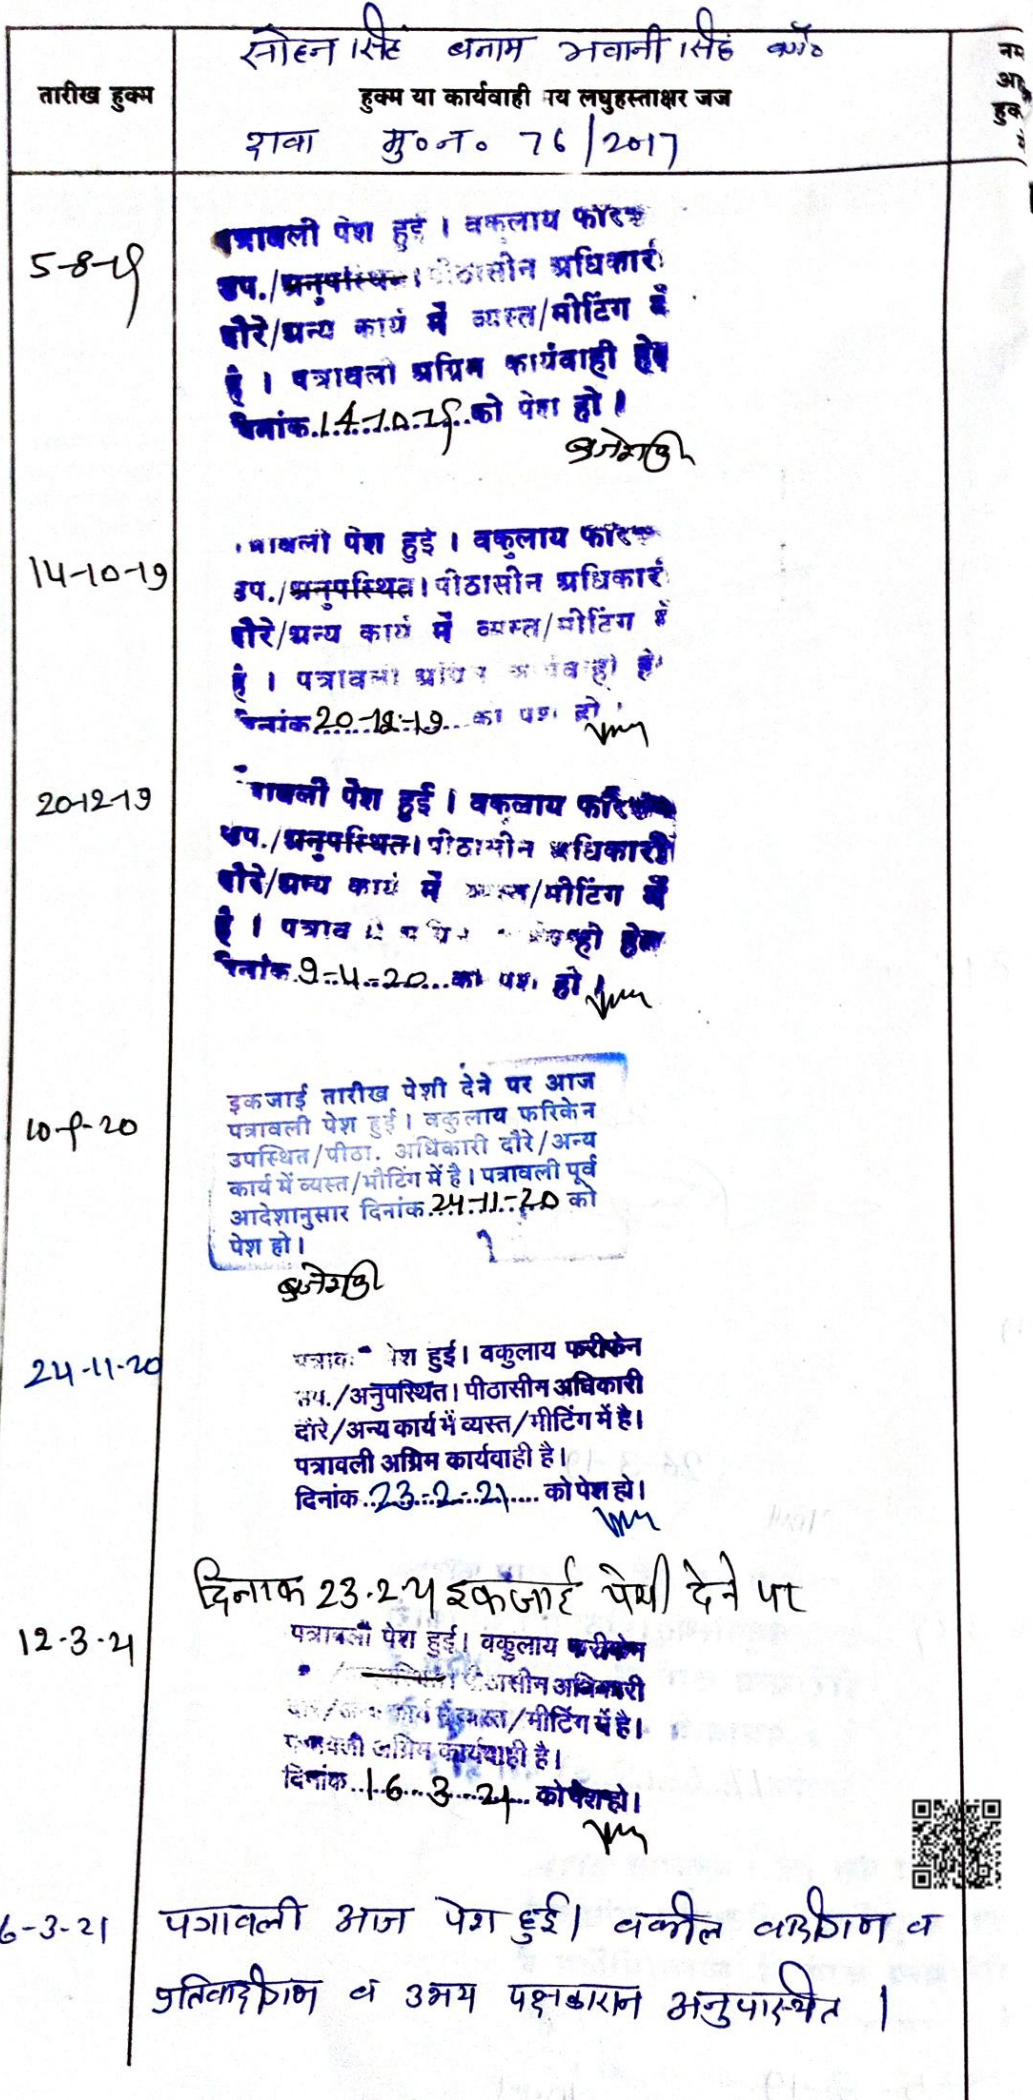 सोहन सिंह बनाम भवानी सिंह वगै०
तारीख हुक्म
हुक्म या कार्यवाही मय लघुहस्ताक्षर जज
नम
अह
हुक
दावा मु०न० 76/2017
5-8-19
पत्रावली पेश हुई । वकुलाय फरि
उप./अनुपस्थित। पीठासीन अधिकारी
दौरे/अन्य कार्य में व्यस्त/मीटिंग में
है । पत्रावली अग्रिम कार्यवाही हेतु
दिनांक 14-10-19 को पेश हो ।
14-10-19
पत्रावली पेश हुई । वकुलाय फरि
उप./अनुपस्थित। पीठासीन अधिकारी
दौरे/अन्य कार्य में व्यस्त/मीटिंग में
है । पत्रावली अग्रिम कार्यवाही हे
दिनांक 20-12-19 को पेश हो
20-12-19
पत्रावली पेश हुई । वकुलाय फरि
उप./अनुपस्थित। पीठासीन अधिकारी
दौरे/अन्य कार्य में व्यस्त/मीटिंग में
है । पत्राव हेतु
दिनांक 9-4-20 को पेश हो ।
10-9-20
इकजाई तारीख पेशी देने पर आज
पत्रावली पेश हुई। वकुलाय फरिकेन
उपस्थित/पीठा. अधिकारी दौरे/अन्य
कार्य में व्यस्त/मीटिंग में है। पत्रावली पूर्व
आदेशानुसार दिनांक 24-11-20 को
पेश हो।
24-11-20
पत्रावली पेश हुई। वकुलाय फरीकेन
उप./अनुपस्थित। पीठासीन अधिकारी
दौरे/अन्य कार्य में व्यस्त/मीटिंग में है।
पत्रावली अग्रिम कार्यवाही है।
दिनांक 23-2-21 को पेश हो।
दिनांक 23-2-21 इकजाई पेशी देने पर
12-3-21
पत्रावली पेश हुई। वकुलाय फरीकेन
पीठासीन अधिकारी
दौरे/अन्य कार्य में व्यस्त/मीटिंग में है।
पत्रावली अग्रिम कार्यवाही है।
दिनांक 16-3-21 को पेश हो।
6-3-21 पत्रावली आज पेश हुई। वकील वादीगण व
प्रतिवादीगण व उभय पक्षकारान अनुपस्थित ।